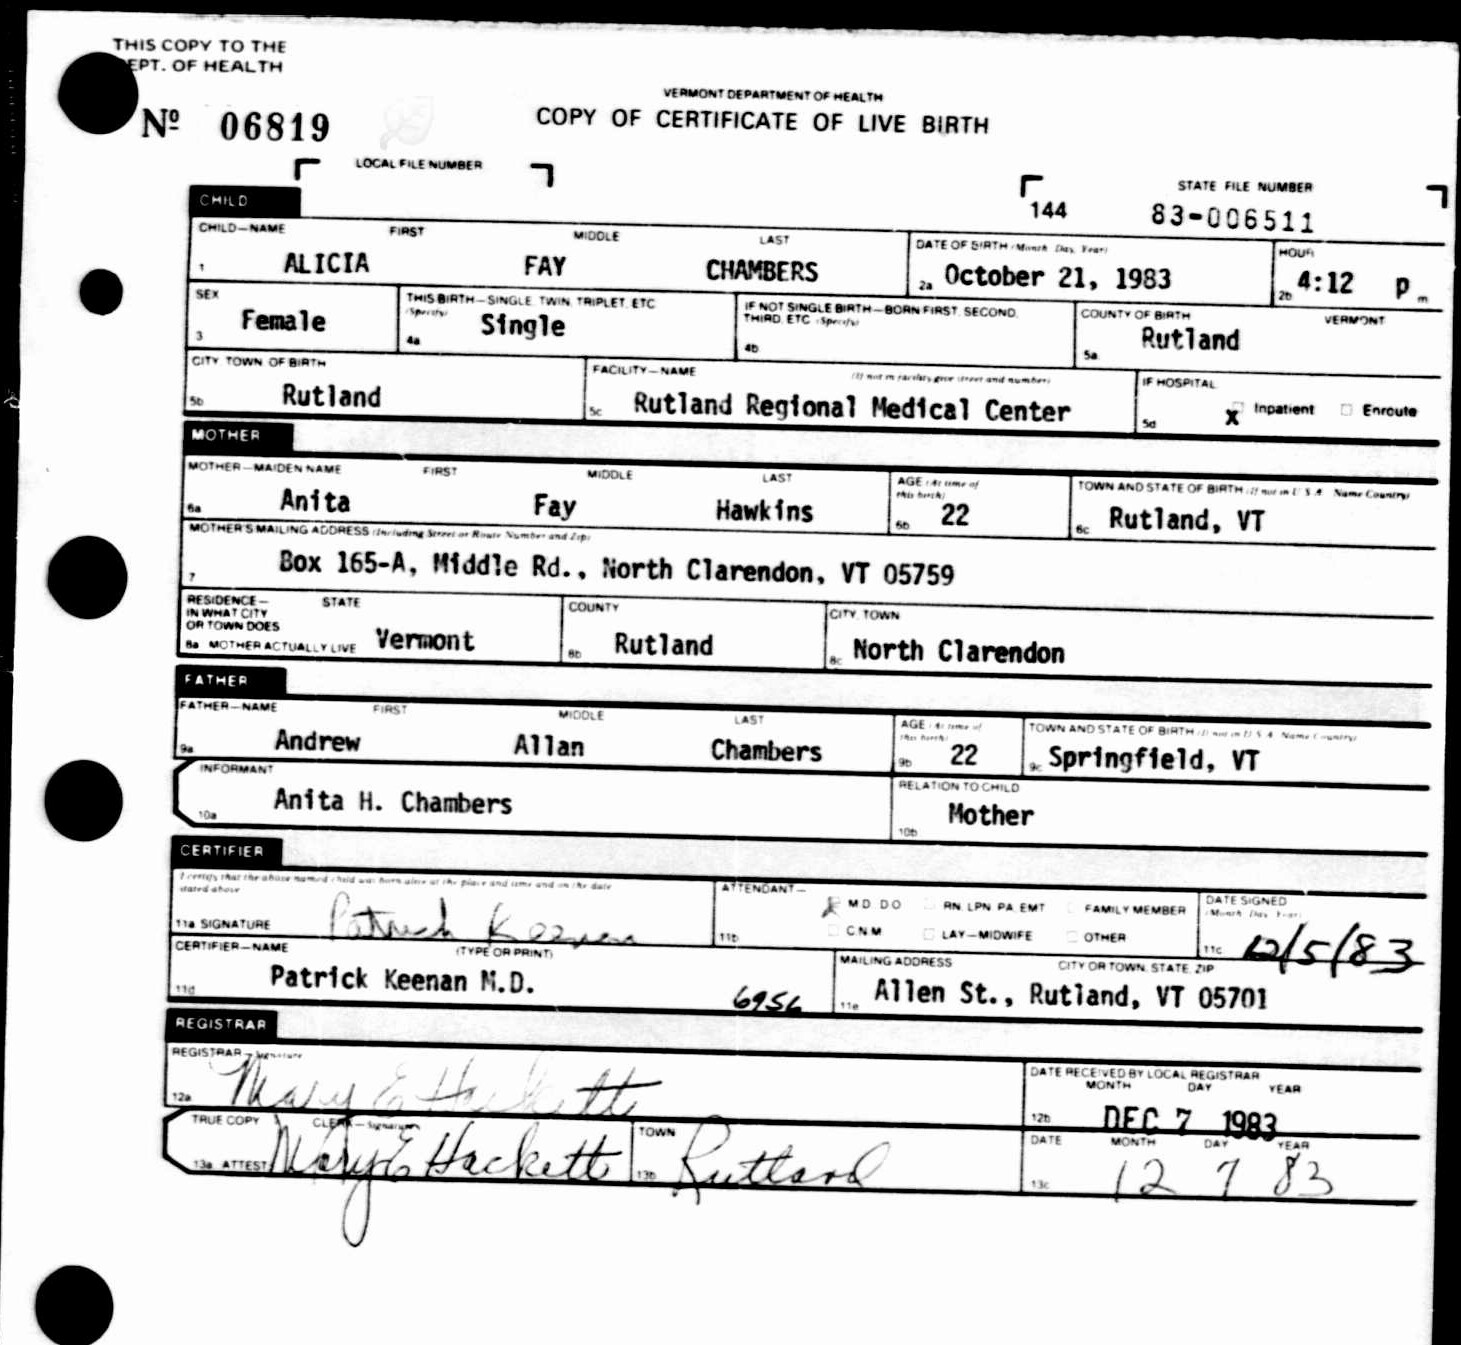 THIS COPY TO THE
DEPT. OF HEALTH
Nº 06819
VERMONT DEPARTMENT OF HEALTH
COPY OF CERTIFICATE OF LIVE BIRTH
LOCAL FILE NUMBER
STATE FILE NUMBER
144 83-006511
CHILD
CHILD—NAME FIRST MIDDLE LAST DATE OF BIRTH (Month, Day, Year) HOUR
1 ALICIA FAY CHAMBERS 2a October 21, 1983 2b 4:12 P m
SEX THIS BIRTH—SINGLE, TWIN, TRIPLET, ETC (Specify) IF NOT SINGLE BIRTH—BORN FIRST, SECOND, THIRD, ETC (Specify) COUNTY OF BIRTH VERMONT
3 Female 4a Single 4b 5a Rutland
CITY, TOWN OF BIRTH FACILITY—NAME (If not in facility give street and number) IF HOSPITAL
5b Rutland 5c Rutland Regional Medical Center 5d X Inpatient Enroute
MOTHER
MOTHER—MAIDEN NAME FIRST MIDDLE LAST AGE (At time of this birth) TOWN AND STATE OF BIRTH (If not in U.S.A. Name Country)
6a Anita Fay Hawkins 6b 22 6c Rutland, VT
MOTHER'S MAILING ADDRESS (Including Street or Route Number and Zip)
7 Box 165-A, Middle Rd., North Clarendon, VT 05759
RESIDENCE— STATE COUNTY CITY, TOWN
IN WHAT CITY
OR TOWN DOES
8a MOTHER ACTUALLY LIVE Vermont 8b Rutland 8c North Clarendon
FATHER
FATHER—NAME FIRST MIDDLE LAST AGE (At time of this birth) TOWN AND STATE OF BIRTH (If not in U.S.A. Name Country)
9a Andrew Allan Chambers 9b 22 9c Springfield, VT
INFORMANT RELATION TO CHILD
10a Anita H. Chambers 10b Mother
CERTIFIER
I certify that the above named child was born alive at the place and time and on the date stated above
ATTENDANT— M.D. D.O RN, LPN, PA, EMT FAMILY MEMBER DATE SIGNED (Month, Day, Year)
11a SIGNATURE Patrick Keenan 11b C.N.M LAY—MIDWIFE OTHER 11c 12/5/83
CERTIFIER—NAME (TYPE OR PRINT) MAILING ADDRESS CITY OR TOWN, STATE, ZIP
11d Patrick Keenan M.D. 6956 11e Allen St., Rutland, VT 05701
REGISTRAR
REGISTRAR—Signature DATE RECEIVED BY LOCAL REGISTRAR
MONTH DAY YEAR
12a Mary E Hackett 12b DEC 7 1983
TRUE COPY CLERK—Signature TOWN DATE MONTH DAY YEAR
13a ATTEST: Mary E Hackett 13b Rutland 13c 12 7 83